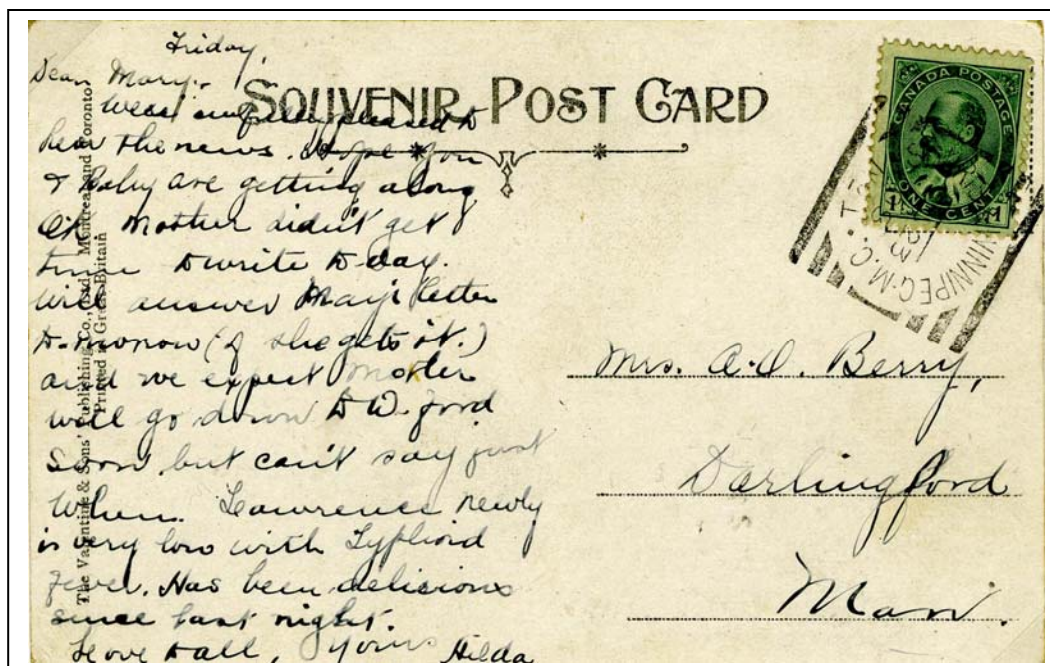 Friday,
Dear Mary:-
Were awfully pleased to
hear the news. Hope you
& Baby are getting along
OK Mother didn't get
time to write to day.
Will answer May's letter
to-morrow (if she gets it.)
and we expect Mother
will go down to W. ford
soon but can't say just
when. Lawrence newly
is very low with Typhoid
Fever. Has been delirious
since last night.
Love to all, Yours Hilda
SOUVENIR POST CARD
The Valentine & Sons' Publishing Co., Ltd., Montreal and Toronto
Printed in Great Britain
CANADA POSTAGE
ONE CENT
1 1
WINNIPEG. M.C.
Mrs. A.O. Berry,
Darlingford
Man.